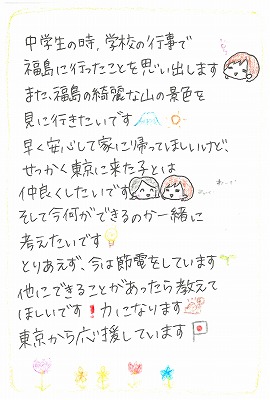 中学生の時、学校の行事で
福島に行ったことを思い出します
また、福島の綺麗な山の景色を
見に行きたいです
早く安心して家に帰ってほしいけど、
せっかく東京に来た子とは
仲良くしたいです
わーい
そして今何ができるのか一緒に
考えたいです
とりあえず、今は節電をしています
他にできることがあったら教えて
ほしいです！力になります
東京から応援しています